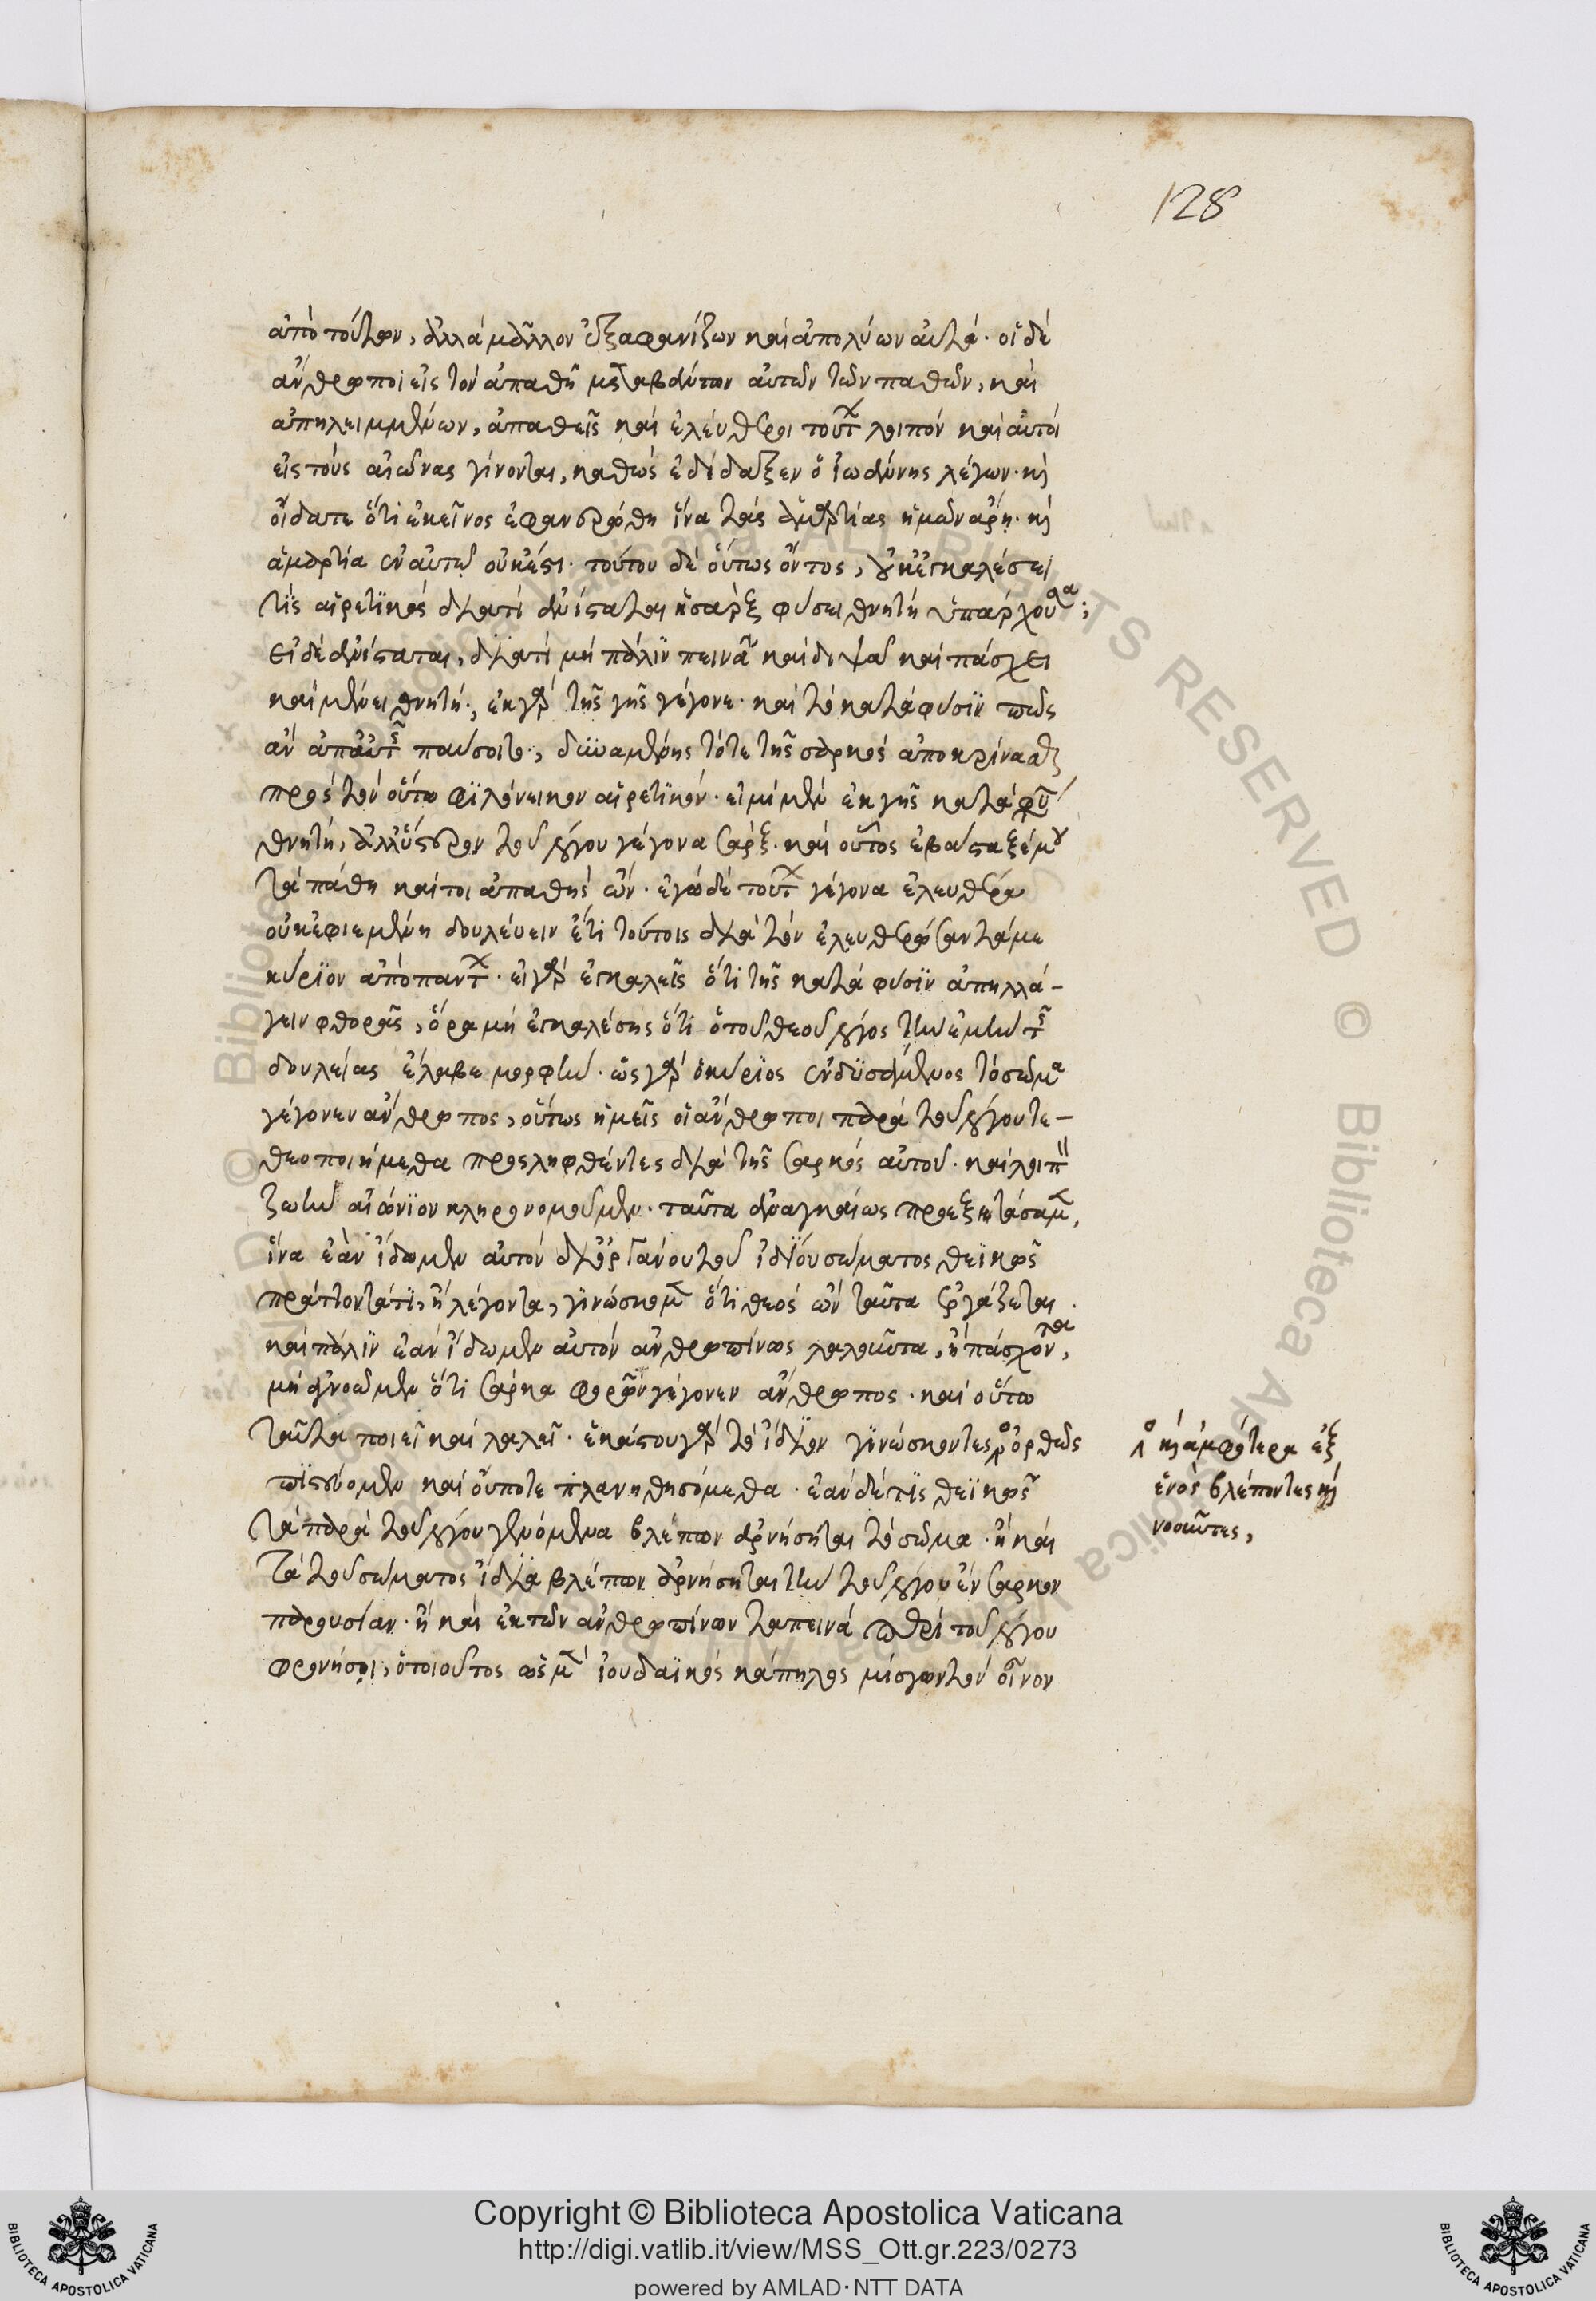 128
ἀπὸ τούτων, ἀλλὰ μᾶλλον ἐξαφανίζων καὶ ἀπολύων αὐτά· οἱ δὲ
ἄνθρωποι εἰς τὸν ἀπαθῆ μεταβάντων αὐτῶν τῶν παθῶν, καὶ
ἀπηλειμμένων, ἀπαθεῖς καὶ ἐλεύθεροι τούτων λοιπὸν καὶ αὐτοὶ
εἰς τοὺς αἰῶνας γίνονται, καθὼς ἐδίδαξεν ὁ ἰωάννης λέγων· καὶ
οἴδατε ὅτι ἐκεῖνος ἐφανερώθη ἵνα τὰς ἁμαρτίας ἡμῶν ἄρη· καὶ
ἁμαρτία ἐν αὐτῷ οὐκ ἔστι· τούτου δὲ οὕτως ὄντος, οὐκ ἐγκαλέσει
τὶς αἱρετικὸς διατί ἀνίσταται ἡ σὰρξ φύσει θνητὴ ὑπάρχουσα;
εἰ δὲ ἀνίσταται, διατί μὴ πάλιν πεινᾶ καὶ διψᾶ καὶ πάσχει
καὶ μένει θνητή; ἐκ γὰρ τῆς γῆς γέγονε· καὶ τὸ κατὰ φύσιν πῶς
ἂν ἀπ' αὐτῆς παύσοιτο; δυναμένης τότε τῆς σαρκὸς ἀποκρίνασθαι
πρὸς τὸν οὕτω φιλόνεικον αἱρετικόν· εἰμὶ μὲν ἐκ γῆς κατὰ φύσιν
θνητή, ἀλλ' ὕστερον τοῦ λόγου γέγονα σάρξ· καὶ οὗτος ἐβάσταξέ μου
τὰ πάθη καίτοι ἀπαθὴς ὤν· ἐγὼ δὲ τούτων γέγονα ἐλευθέρα
οὐκ ἐφιεμένη δουλεύειν ἔτι τούτοις διὰ τὸν ἐλευθερώσαντά με
κύριον ἀπὸ πάντων· εἰ γὰρ ἐγκαλεῖς ὅτι τῆς κατὰ φύσιν ἀπηλλά-
γειν φθορᾶς, ὅρα μὴ ἐγκαλέσης ὅτι ὁ τοῦ θεοῦ λόγος τὴν ἐμὴν τῆς
δουλείας ἔλαβε μορφήν· ὡς γὰρ ὁ κύριος ἐνδυσάμενος τὸ σῶμα
γέγονεν ἄνθρωπος, οὕτως ἡμεῖς οἱ ἄνθρωποι παρὰ τοῦ λόγου τε-
θεοποιήμεθα προσληφθέντες διὰ τῆς σαρκὸς αὐτοῦ· καὶ λοιπὸν
ζωὴν αἰώνιον κληρονομοῦμεν· ταῦτα ἀναγκαίως προεξητάσαμεν,
ἵνα ἐὰν ἴδωμεν αὐτὸν δι' ὀργάνου τοῦ ἰδίου σώματος θεϊκῶς
πράττοντά τι, ἢ λέγοντα, γινώσκωμεν ὅτι θεὸς ὢν ταῦτα ἐργάζεται·
καὶ πάλιν ἐὰν ἴδωμεν αὐτὸν ἀνθρωπίνως λαλοῦντα, ἢ πάσχοντα,
μὴ ἀγνοῶμεν ὅτι σάρκα φορῶν γέγονεν ἄνθρωπος· καὶ οὕτω
ταῦτα ποιεῖ καὶ λαλεῖ· ἑκάστου γὰρ τὸ ἴδιον γινώσκοντες ὀρθῶς
πιστεύομεν καὶ οὔποτε πλανηθησόμεθα· ἐὰν δέ τις θεϊκῶς
τὰ παρὰ τοῦ λόγου γενόμενα βλέπων ἀρνήσηται τὸ σῶμα· ἢ καὶ
τὰ τοῦ σώματος ἴδια βλέπων ἀρνήσηται τὴν τοῦ λόγου ἔνσαρκον
παρουσίαν· ἢ καὶ ἐκ τῶν ἀνθρωπίνων ταπεινὰ περὶ τοῦ λόγου
φρονήσοι, ὁ τοιοῦτος ὡς μὲν ἰουδαϊκὸς κάπηλος μίσγων τὸν οἶνον
καὶ ἀμφότερα ἐξ
ἑνὸς βλέποντες καὶ
νοοῦντες,
Copyright © Biblioteca Apostolica Vaticana
http://digi.vatlib.it/view/MSS_Ott.gr.223/0273
powered by AMLAD·NTT DATA